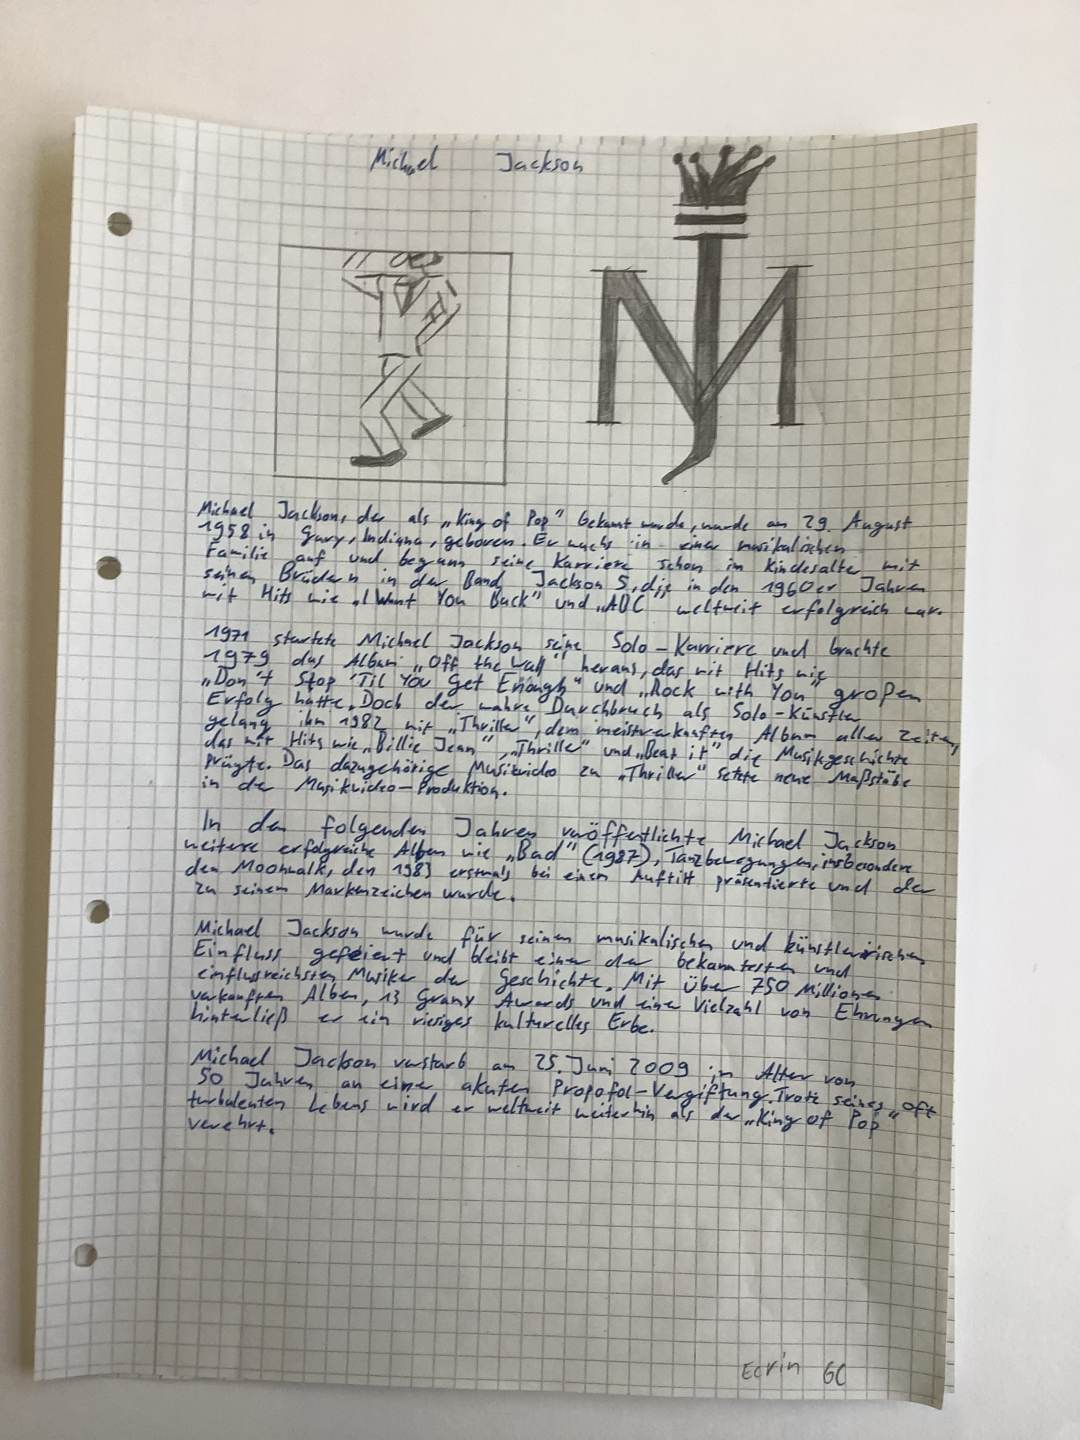 Michael Jackson
MJ
Michael Jackson, der als „King of Pop" bekannt wurde, wurde am 29. August
1958 in Gary, Indiana, geboren. Er wuchs in einer musikalischen
Familie auf und begann seine Karriere schon im Kindesalte mit
seinen Brüdern in der Band Jackson 5, die in den 1960er Jahren
mit Hits wie „I Want You Back" und „ABC" weltweit erfolgreich war.
1971 startete Michael Jackson seine Solo-Karriere und brachte
1979 das Album „Off the Wall" heraus, das mit Hits wie
„Don't Stop 'Til You Get Enough" und „Rock with You" großen
Erfolg hatte. Doch der wahre Durchbruch als Solo-Künstler
gelang ihm 1982 mit „Thriller", dem meistverkauften Album aller Zeiten,
das mit Hits wie „Billie Jean", „Thriller" und „Beat it" die Musikgeschichte
prägte. Das dazugehörige Musikvideo zu „Thriller" setzte neue Maßstäbe
in der Musikvideo-Produktion.
In den folgenden Jahren veröffentlichte Michael Jackson
weitere erfolgreiche Alben wie „Bad" (1987), Tanzbewegungen, insbesondere
den Moonwalk, den 1983 erstmals bei einem Auftitt präsentierte und der
zu seinem Markenzeichen wurde.
Michael Jackson wurde für seinen musikalischen und künstlerischen
Einfluss gefeiert und bleibt einer der bekanntesten und
einflussreichsten Musiker der Geschichte. Mit über 750 Millionen
verkauften Alben, 13 Gramy Awards und eine Vielzahl von Ehrungen
hinterließ er ein riesiges kulturelles Erbe.
Michael Jackson verstarb am 25. Juni 2009 im Alter von
50 Jahren an einer akuten Propofol-Vergiftung. Trotz seines oft
turbulenten Lebens wird er weltweit weiterhin als der „King of Pop"
verehrt.
Ecrin 6C